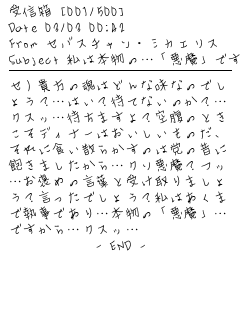 受信箱 [001/500]
Date 08/08 00:42
From セバスチャン・ミカエリス
Subject 私は本物の…「悪魔」です
セ）貴方の魂はどんな味なのでし
ょうて…はいて待てないのかて…
クスッ…待ちますよて空腹のとき
こそディナーはおいしいものだ、
それに食い散らかすのは党の昔に
飽きましたから…クソ悪魔てフッ
…お褒めの言葉と受け取りましょ
うて言ったでしょう私はあくま
で執事であり…本物の「悪魔」…
ですから…クスッ…
- END -